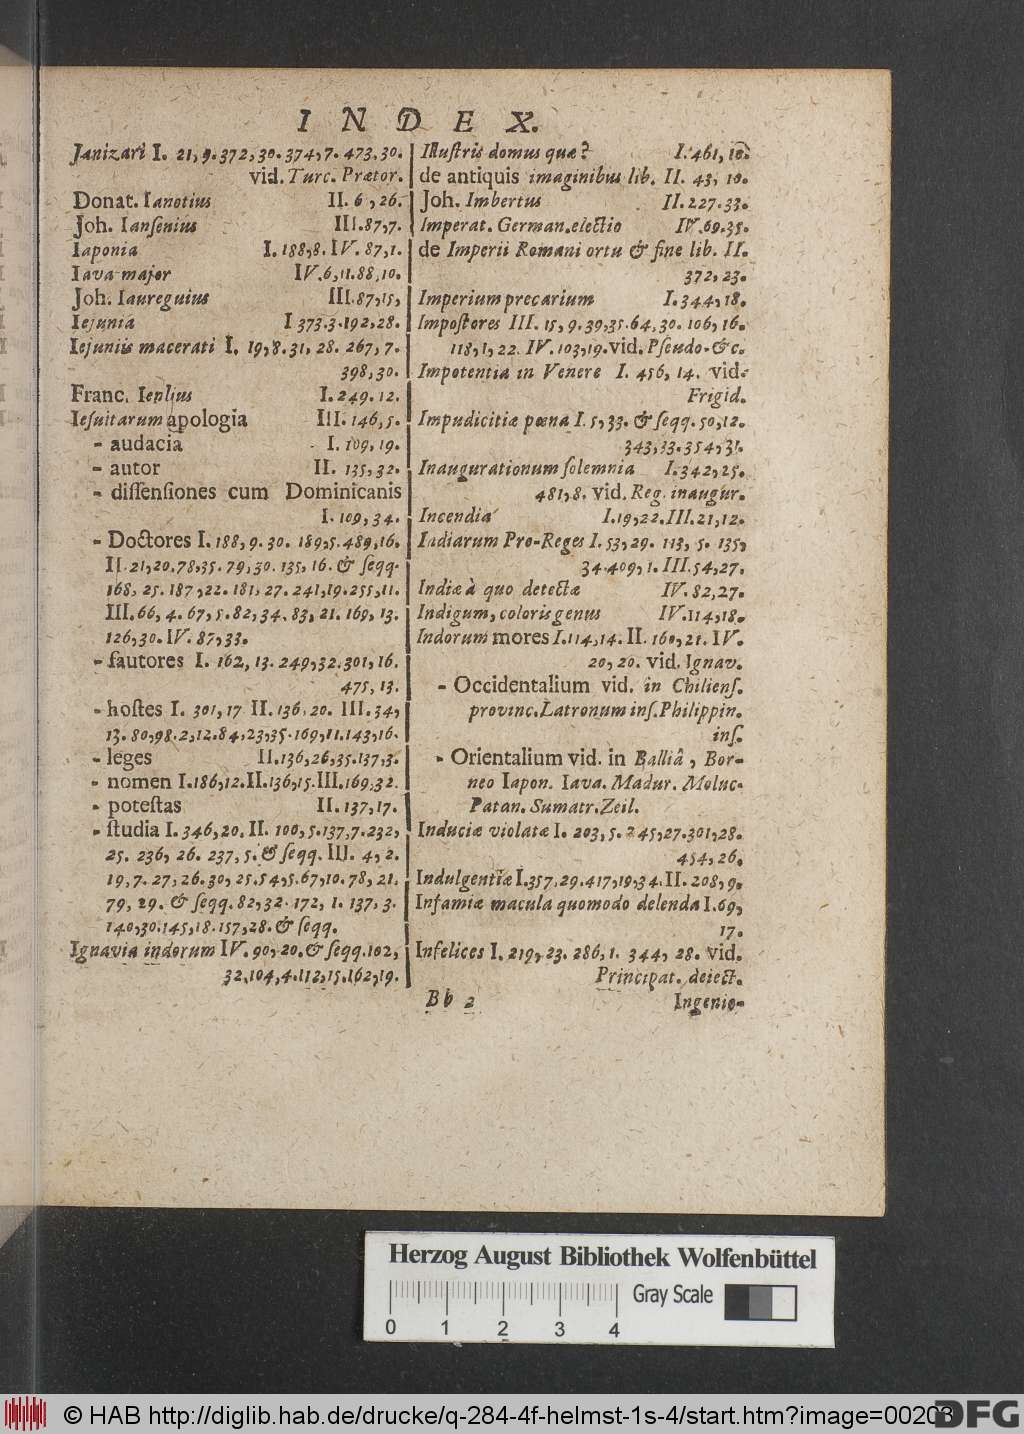 INDEX.
Janizari I. 21, 9. 372, 30. 374, 7. 473. 30.
vid. Turc. Prætor.
Donat. Ianotius II. 6, 26.
Joh. Ianſenius III. 87, 7.
Iaponia I. 188, 8. IV. 87, 1.
Iava major IV. 6, 11. 88, 10.
Joh. Iaureguius III. 87, 15,
Iejunia I 373. 3. 192, 28.
Iejuniis macerati I. 19, 8. 31, 28. 267, 7.
398, 30.
Franc. Ieplius I. 249. 12.
Ieſuitarum apologia III. 146, 5.
- audacia I. 109, 19.
- autor II. 135, 32.
- diſſenſiones cum Dominicanis
I. 109, 34.
- Doctores I. 188, 9. 30. 189, 5. 489, 16.
II. 21, 20. 78, 35. 79, 30. 135, 16. & ſeqq.
168, 25. 187, 22. 181, 27. 241, 19. 255, 11.
III. 66, 4. 67, 5. 82, 34. 83, 21. 169, 13.
126, 30. IV. 87, 33.
- fautores I. 162, 13. 249, 32. 301, 16.
475, 13.
- hoſtes I. 301, 17 II. 136, 20. III. 34,
13. 80, 98. 2, 12. 84, 23, 35. 169, 11. 143, 16.
- leges II. 136, 26, 35. 137, 3.
- nomen I. 186, 12. II. 136, 15. III. 169, 32.
- poteſtas II. 137, 17.
- ſtudia I. 346, 20. II. 100, 5. 137, 7. 232,
25. 236, 26. 237, 5. & ſeqq. III. 4, 2.
19, 7. 27, 26. 30, 25. 54, 5. 67, 10. 78, 21.
79, 29. & ſeqq. 82, 32. 172, 1. 137, 3.
140, 30. 145, 18. 157, 28. & ſeqq.
Ignavia indorum IV. 90, 20. & ſeqq. 102,
32. 104, 4. 112, 15. 162, 19.
Illuſtris domus quæ? I. 461, 10.
de antiquis imaginibus lib. II. 43, 10.
Joh. Imbertus II. 227. 33.
Imperat. German. electio IV. 69. 35.
de Imperii Romani ortu & fine lib. II.
372, 23.
Imperium precarium I. 344, 18.
Impoſtores III. 15, 9. 39, 35. 64, 30. 106, 16.
118, 1, 22. IV. 103, 19. vid. Pſeudo. &c.
Impotentia in Venere I. 456, 14. vid.
Frigid.
Impudicitiæ pœna I. 5, 33. & ſeqq. 50, 12.
343, 33. 354, 31.
Inaugurationum ſolemnia I. 342, 25.
481, 8. vid. Reg. inaugur.
Incendia I. 19, 22. III. 21, 12.
Indiarum Pro-Reges I. 53, 29. 113, 5. 135,
34. 409, 1. III. 54, 27.
Indiæ à quo detectæ IV. 82, 27.
Indigum, coloris genus IV. 114, 18.
Indorum mores I. 114, 14. II. 160, 21. IV.
20, 20. vid. Ignav.
- Occidentalium vid. in Chilienſ.
provinc. Latronum inſ. Philippin.
inſ.
- Orientalium vid. in Balliâ, Bor-
neo Iapon. Iava. Madur. Moluc.
Patan. Sumatr. Zeil.
Induciæ violatæ I. 203, 5. 245, 27. 301, 28.
454, 26.
Indulgentiæ I. 357, 29. 417, 19, 34. II. 208, 9.
Infamiæ macula quomodo delenda I. 69,
17.
Infelices I. 219, 23. 286, 1. 344, 28. vid.
Principat. deiect.
Bb 2 Ingenio-
Herzog August Bibliothek Wolfenbüttel
Gray Scale
0 1 2 3 4
© HAB http://diglib.hab.de/drucke/q-284-4f-helmst-1s-4/start.htm?image=00203
DFG